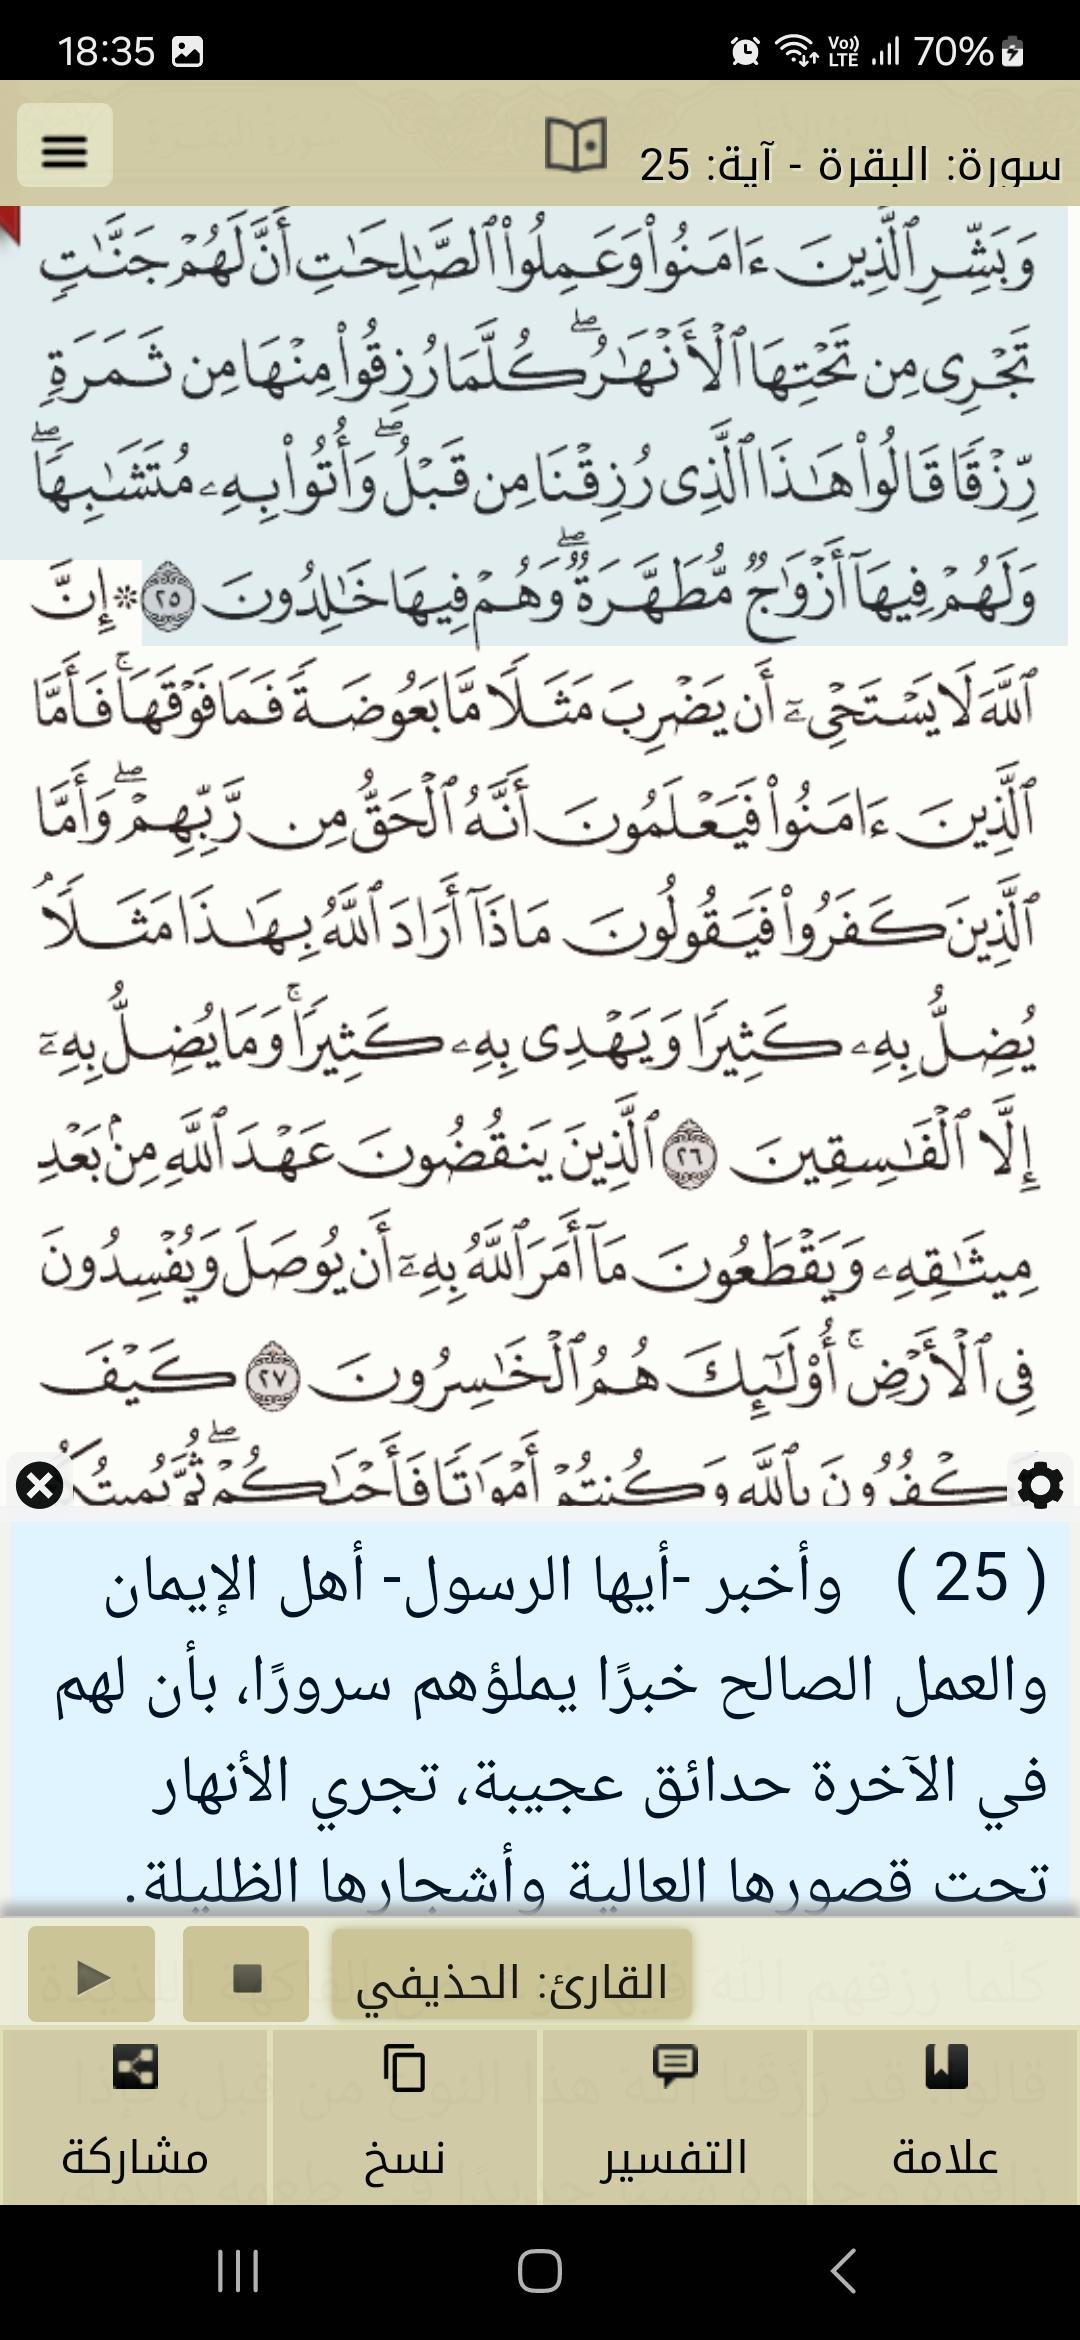 18:35
Vo)) LTE 70%
سورة: البقرة - آية: 25
وَبَشِّرِ ٱلَّذِينَ ءَامَنُوا۟ وَعَمِلُوا۟ ٱلصَّـٰلِحَـٰتِ أَنَّ لَهُمْ جَنَّـٰتٍ
تَجْرِى مِن تَحْتِهَا ٱلْأَنْهَـٰرُ ۖ كُلَّمَا رُزِقُوا۟ مِنْهَا مِن ثَمَرَةٍ
رِّزْقًا قَالُوا۟ هَـٰذَا ٱلَّذِى رُزِقْنَا مِن قَبْلُ ۖ وَأُتُوا۟ بِهِۦ مُتَشَـٰبِهًا ۖ
وَلَهُمْ فِيهَآ أَزْوَٰجٌ مُّطَهَّرَةٌ ۖ وَهُمْ فِيهَا خَـٰلِدُونَ ٢٥ * إِنَّ
ٱللَّهَ لَا يَسْتَحْىِۦٓ أَن يَضْرِبَ مَثَلًا مَّا بَعُوضَةً فَمَا فَوْقَهَا ۚ فَأَمَّا
ٱلَّذِينَ ءَامَنُوا۟ فَيَعْلَمُونَ أَنَّهُ ٱلْحَقُّ مِن رَّبِّهِمْ ۖ وَأَمَّا
ٱلَّذِينَ كَفَرُوا۟ فَيَقُولُونَ مَاذَآ أَرَادَ ٱللَّهُ بِهَـٰذَا مَثَلًا ۘ
يُضِلُّ بِهِۦ كَثِيرًا وَيَهْدِى بِهِۦ كَثِيرًا ۚ وَمَا يُضِلُّ بِهِۦٓ
إِلَّا ٱلْفَـٰسِقِينَ ٢٦ ٱلَّذِينَ يَنقُضُونَ عَهْدَ ٱللَّهِ مِنۢ بَعْدِ
مِيثَـٰقِهِۦ وَيَقْطَعُونَ مَآ أَمَرَ ٱللَّهُ بِهِۦٓ أَن يُوصَلَ وَيُفْسِدُونَ
فِى ٱلْأَرْضِ ۚ أُو۟لَـٰٓئِكَ هُمُ ٱلْخَـٰسِرُونَ ٢٧ كَيْفَ
تَكْفُرُونَ بِٱللَّهِ وَكُنتُمْ أَمْوَٰتًا فَأَحْيَـٰكُمْ ۖ ثُمَّ يُمِيتُكُمْ
( 25 ) وأخبر -أيها الرسول- أهل الإيمان
والعمل الصالح خبرًا يملؤهم سرورًا، بأن لهم
في الآخرة حدائق عجيبة، تجري الأنهار
تحت قصورها العالية وأشجارها الظليلة.
القارئ: الحذيفي
علامة
التفسير
نسخ
مشاركة